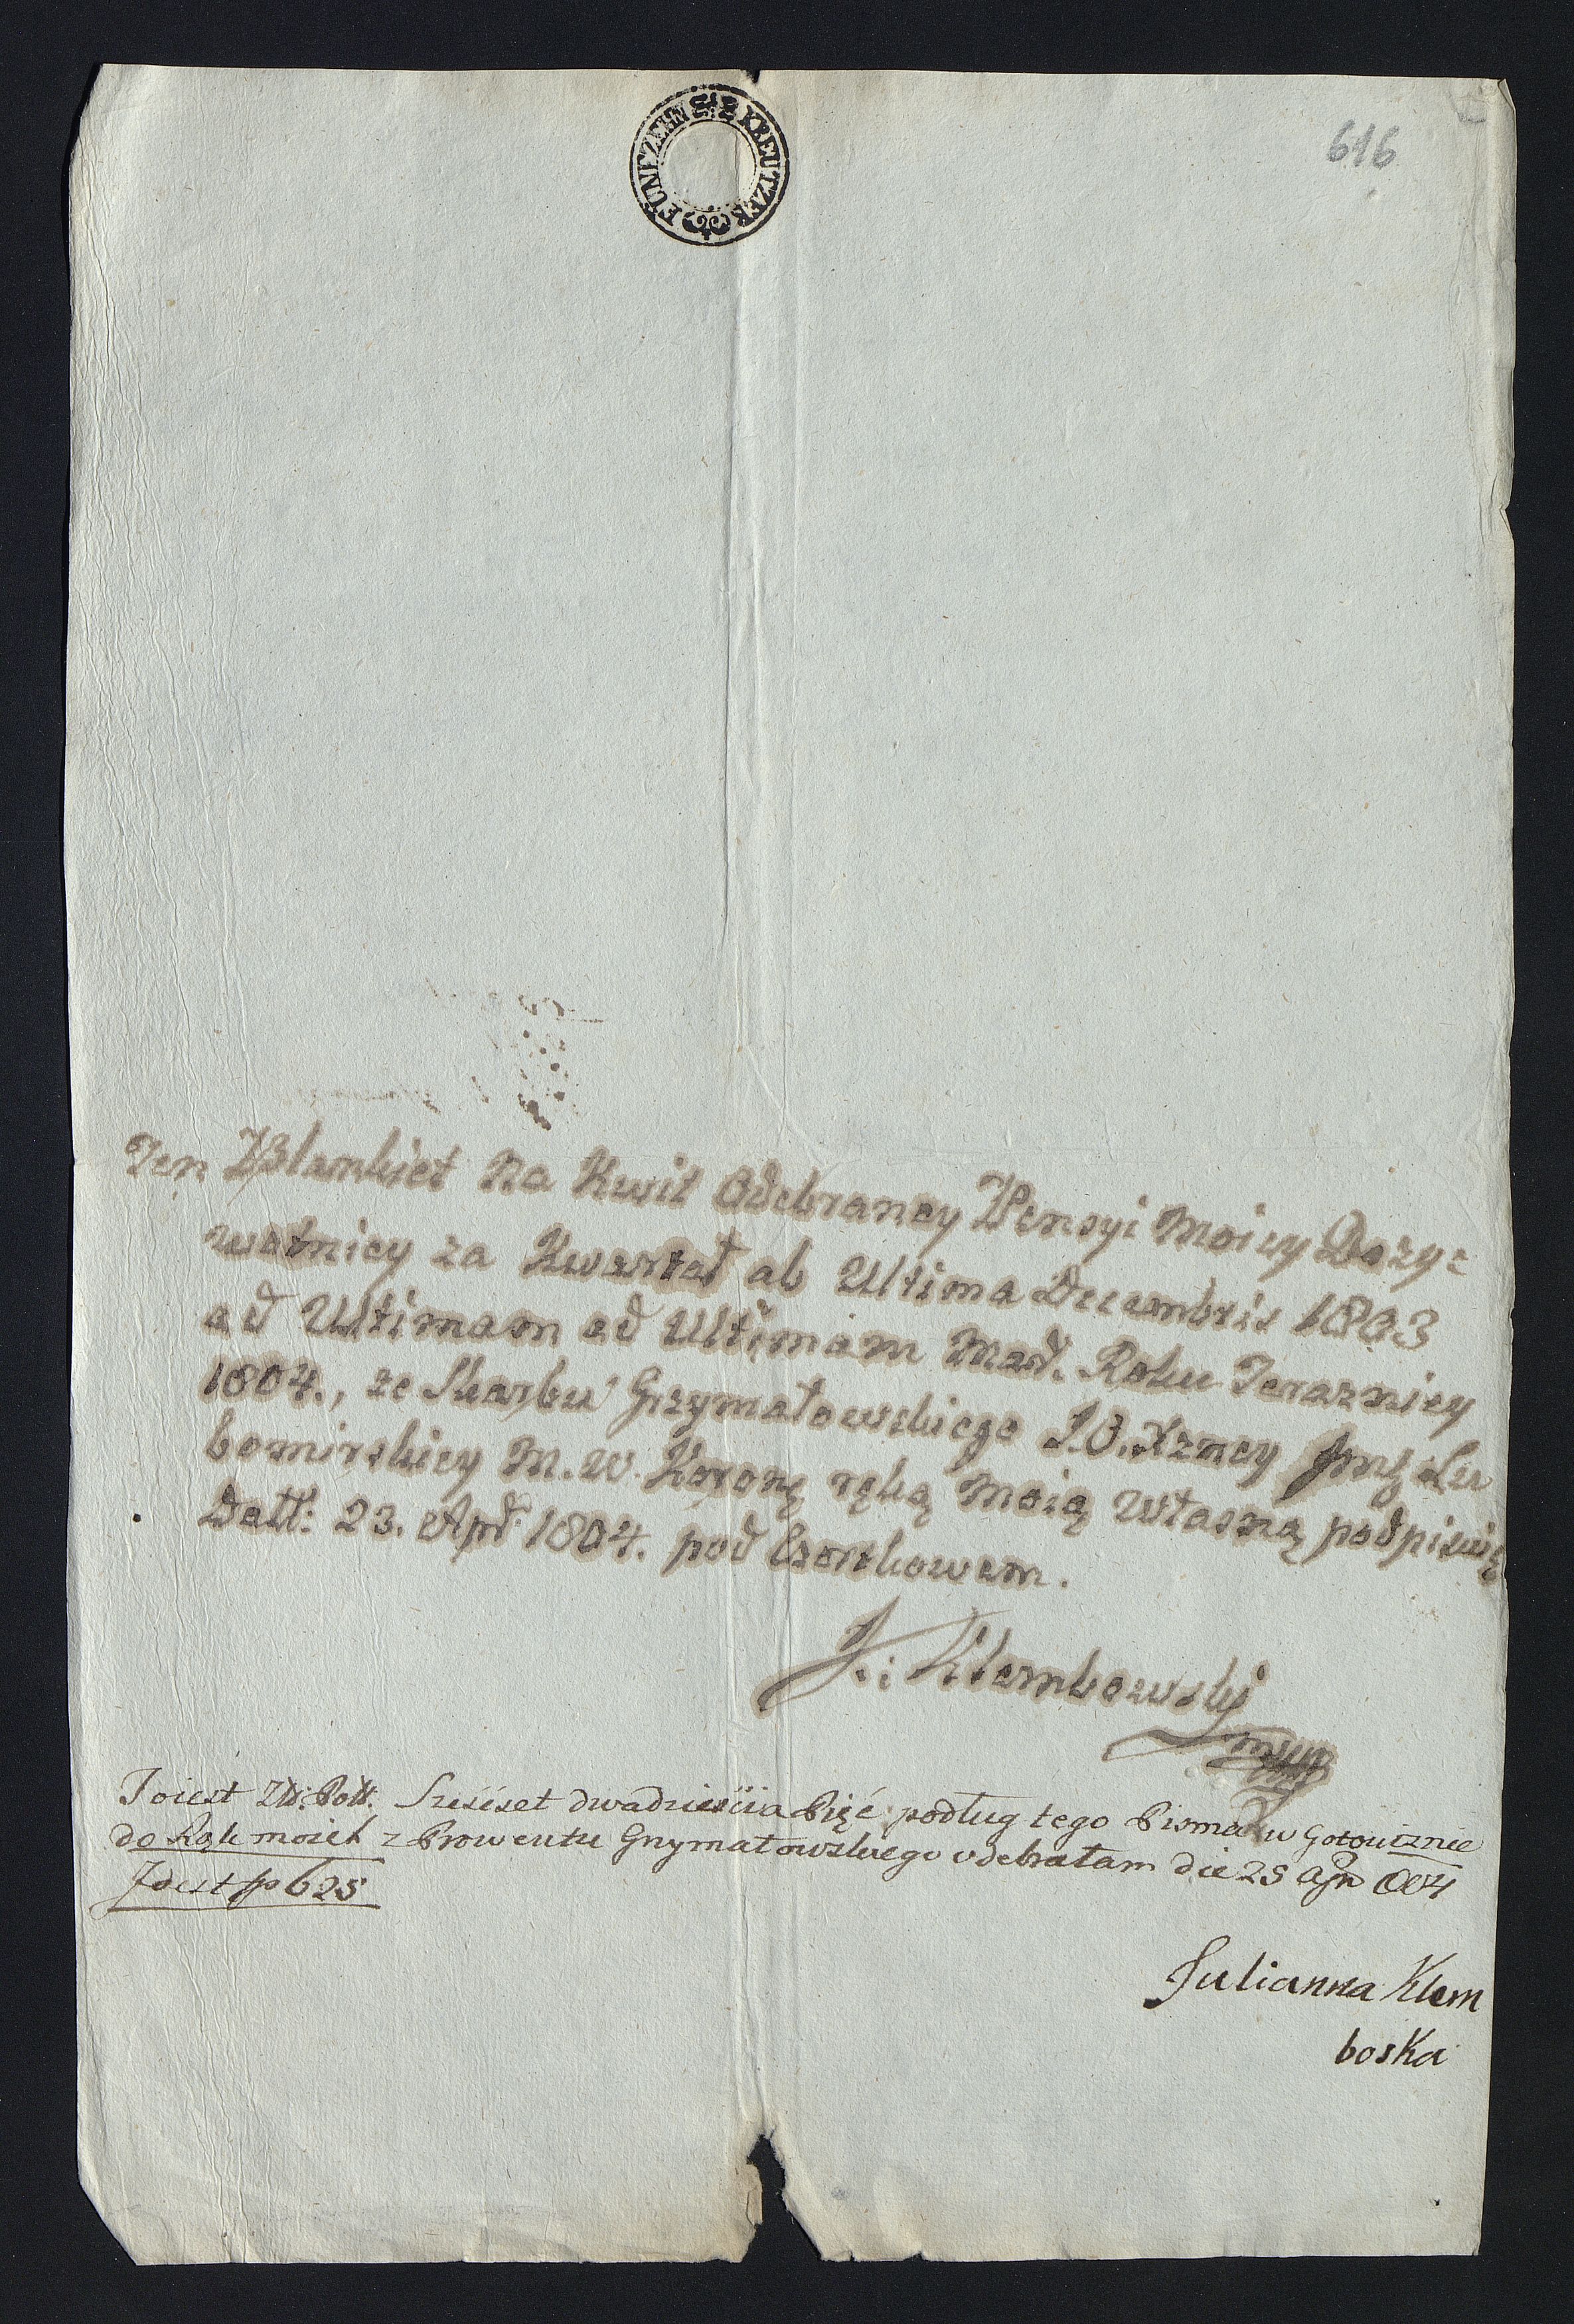 616
FUNFZEHN KREUTZER
Ten Blankiet na Kwit Odebraney Pensyi Moiey Dozy=
wotniey za Kwartał ab Ultima Decembris 1803
ad Ultimam ad Ultimam Mart. Roku Terazniey
1804., ze Skarbu Grzymałowskiego J.O. Xzney Jmć Lu
bomirskiey M. W. Koronę ręką moią własną podpisuię
Datt: 23. Apr 1804. pod Czortkowem.
J.: Klembowski
mp
To iest Złł: Poll: Szesćset dwadziescia Pięć podług tego Pisma w Gotowiznie
do Rąk moich z Prowentu Grzymałowskiego odebrałam die 25 Apr 804
Id est fp 625
Julianna Klem
boska